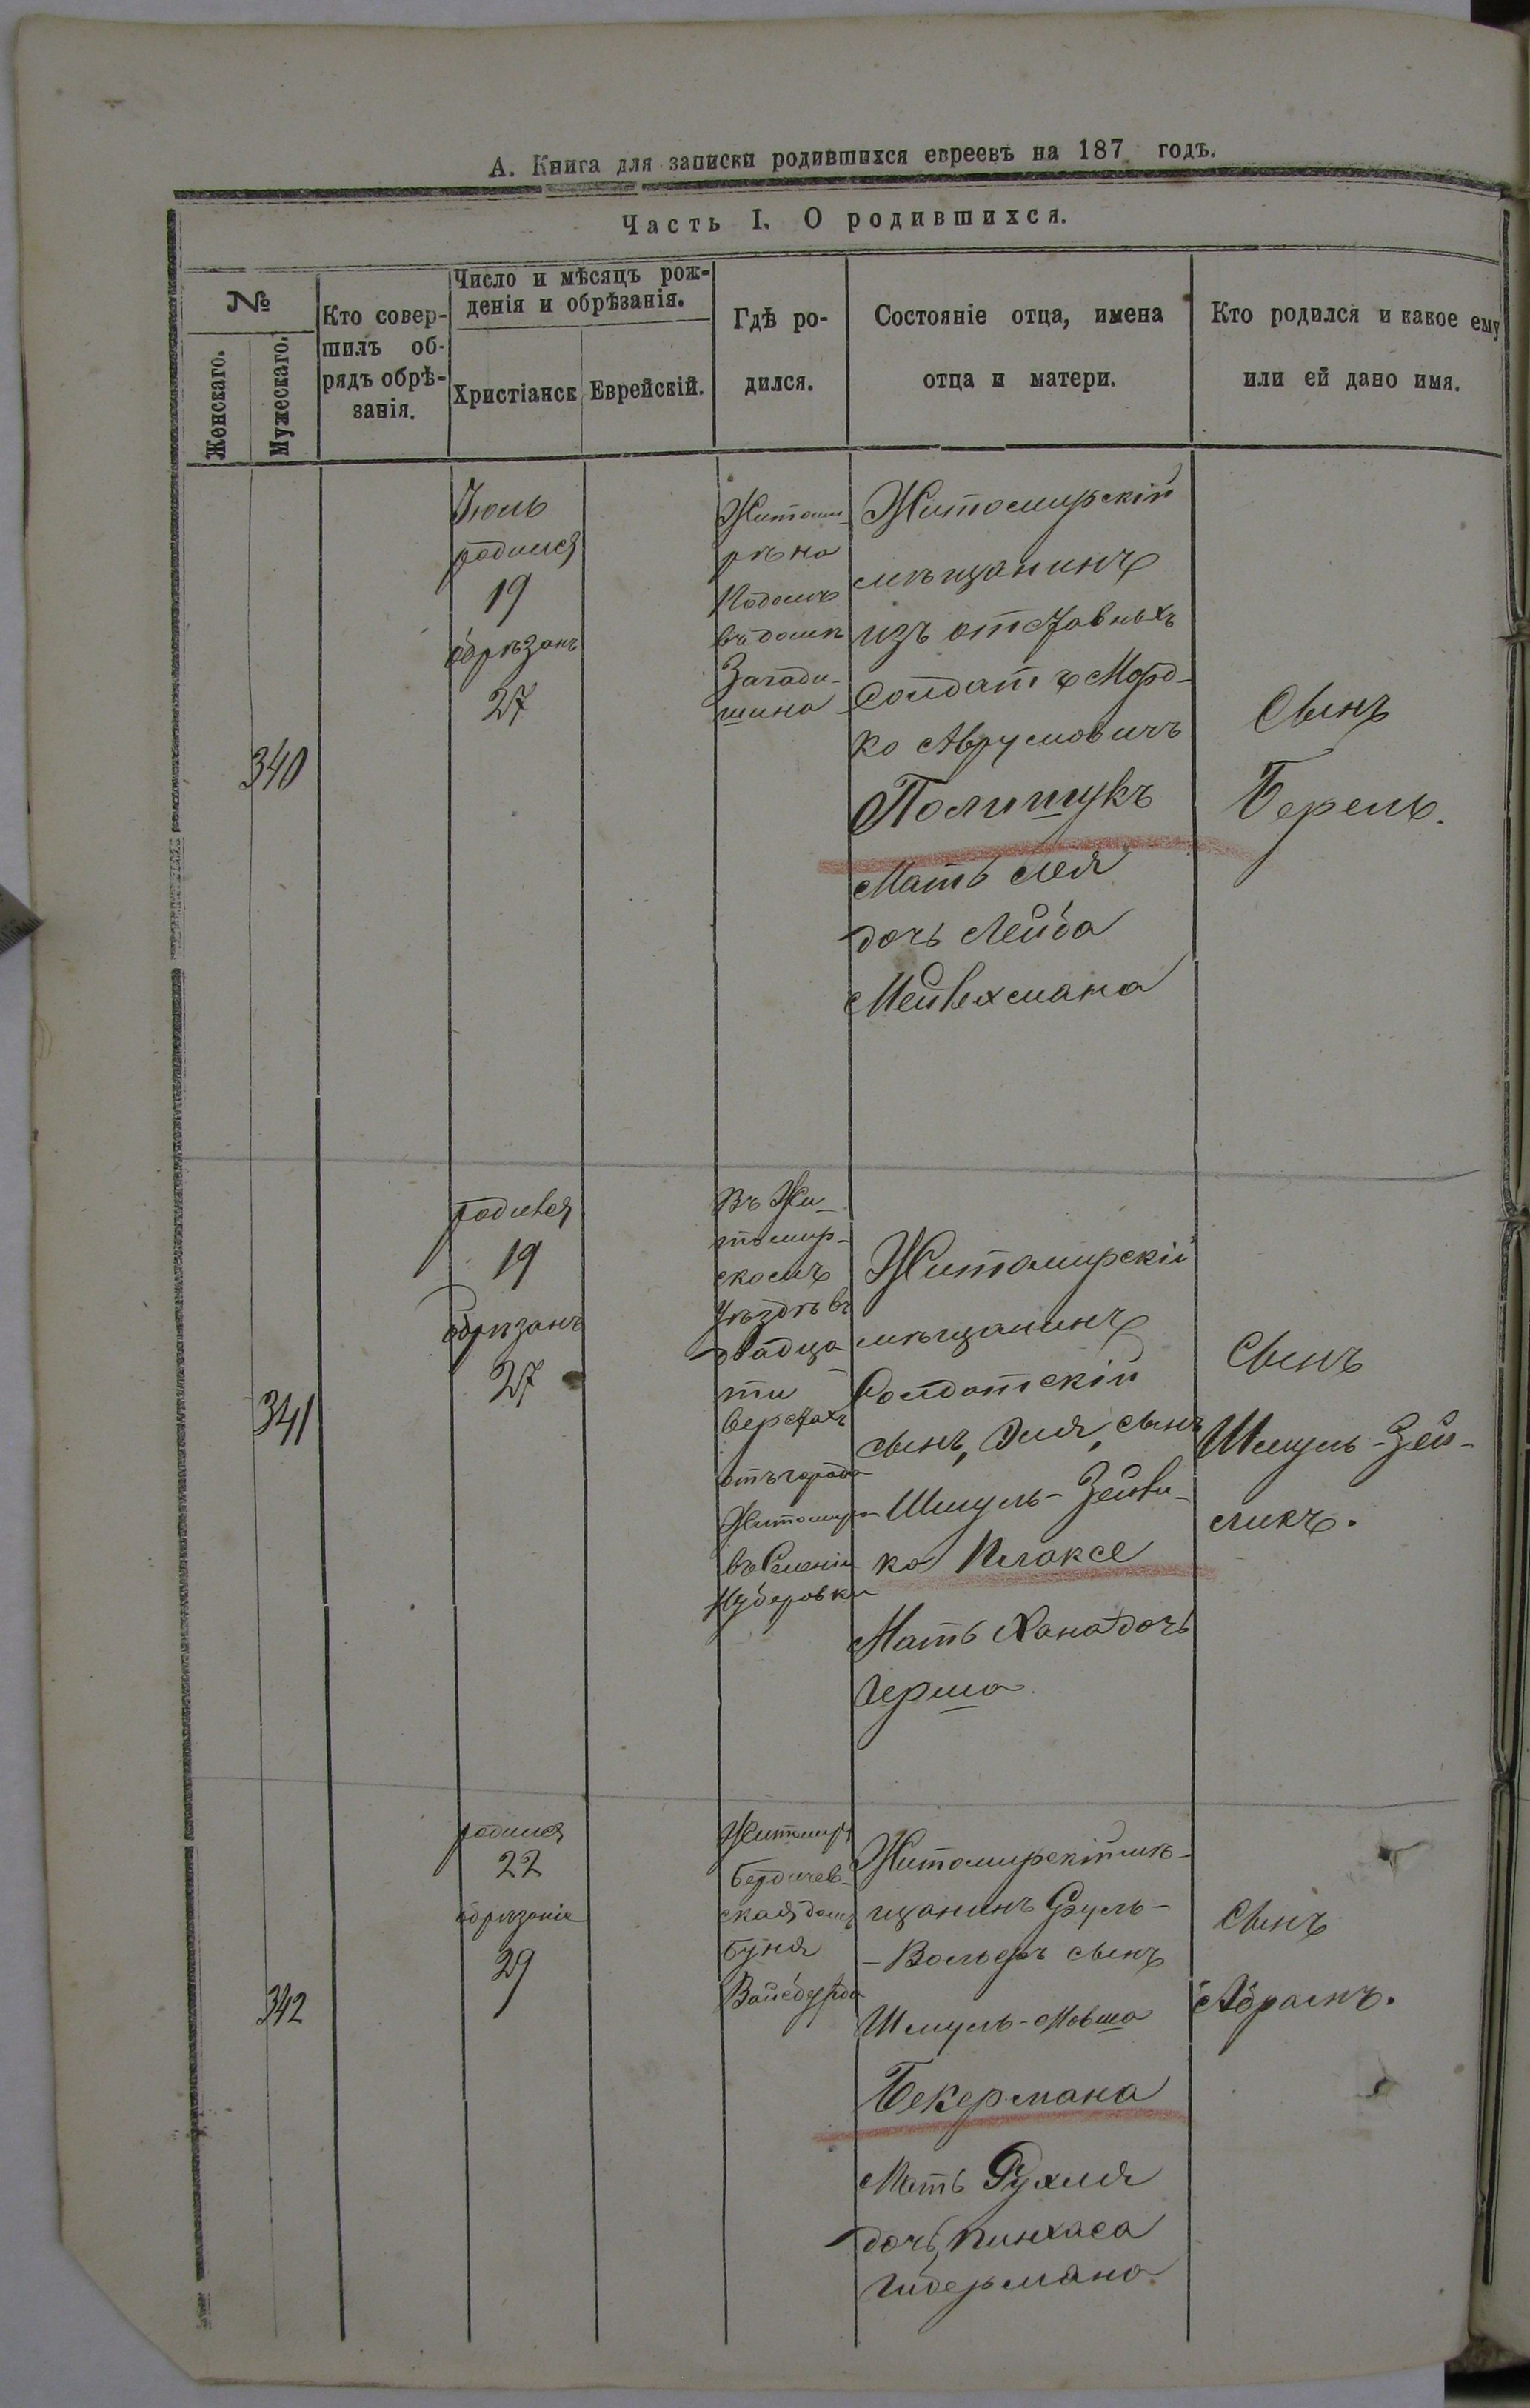 А. Книга для записки родившихся евреевъ на 187 годъ.
Часть I. О родившихся.
№
Женскаго.
Мужескаго.
Кто совер-
шилъ об-
рядъ обрѣ-
занія.
Число и мѣсяцъ рож-
денія и обрѣзанія.
Христіанск
Еврейскій.
Гдѣ ро-
дился.
Состояніе отца, имена
отца и матери.
Кто родился и какое ему
или ей дано имя.
340
Іюль
родился
19
обрѣзанъ
27
Житоми-
рѣ на
Подолѣ
въ домѣ
Житомирскій
мѣщанинъ
изъ отставныхъ
Солдатъ Морд-
ко Аврумовичъ
Полищукъ
Мать Лея
дочь Лейба
Сынъ
Берель.
341
родился
19
обрѣзанъ
27
Въ Жи-
томир-
скомъ
Уѣздѣ въ
двадца
ти
верстахъ
отъ города
Житомира
въ
Житомирскій
мѣщанинъ
Солдатскій
сынъ, Эля, сынъ
Шмуль-Зейви-
ка Плаксе
Мать Хана дочь
Герша
Сынъ
Шмуль-Зей-
ликъ.
342
родился
22
обрѣзаніе
29
Житомиръ
Бердичев-
ская домъ
Буня
Житомирскій мѣ-
щанинъ Сруль-
-Вольфъ сынъ
Шмуль-Мовша
Бекермана
Мать Рухля
дочь Пинхаса
Сынъ
Абрамъ.